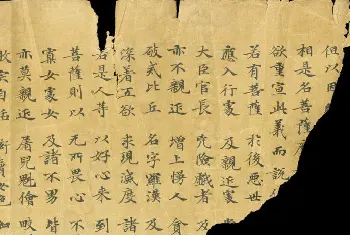 但以因
相是名菩薩
欲重宣此義而說
若有菩薩 於後惡世
應入行處 及親近處
大臣官長 兇險戲者 及
亦不親近 增上慢人 貪
破戒比丘 名字羅漢 及
深著五欲 求現滅度 諸
若是人等 以好心來 到
菩薩則以 無所畏心 不
寡女處女 及諸不男 皆
亦莫親近 屠兒魁膾 畋
自活 衒賣女